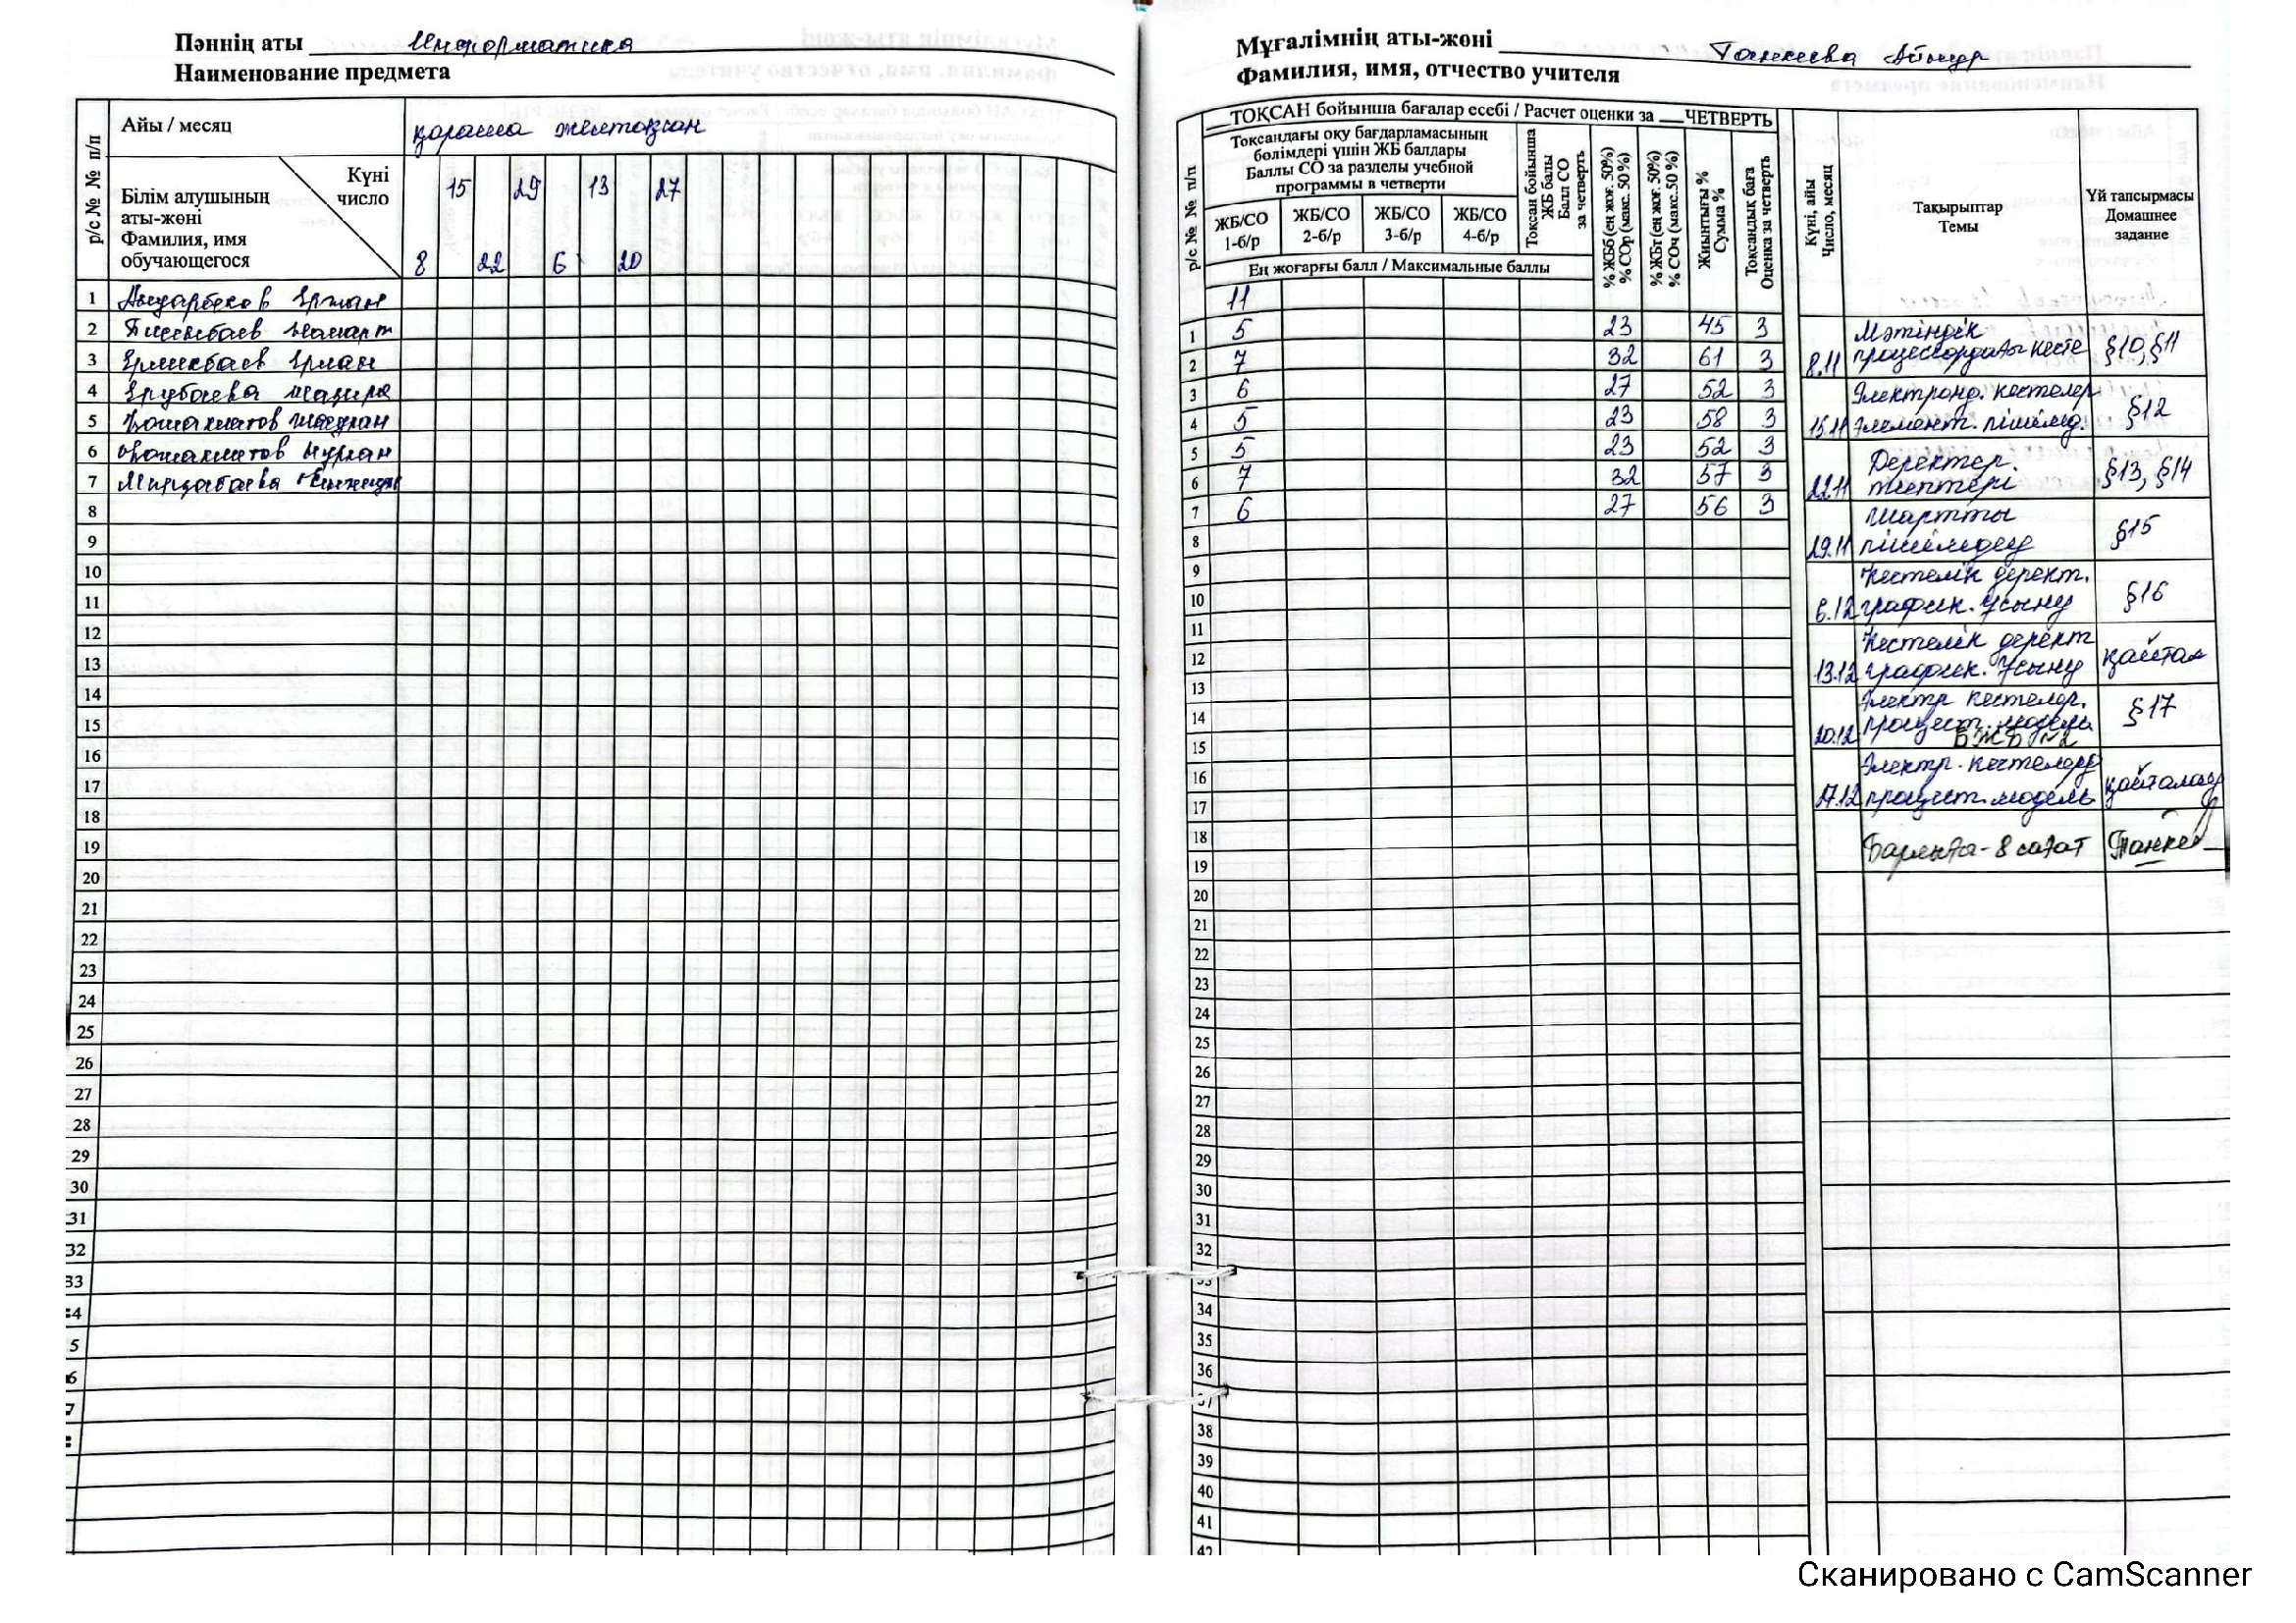 Пәннің аты Информатика
Наименование предмета
р/с № № п/п
Айы / месяц
қараша желтоқсан
Күні
число
Білім алушының
аты-жөні
Фамилия, имя
обучающегося
15 29 13 27
8 22 6 20
1
2
3
4
5
6
7
8
9
10
11
12
13
14
15
16
17
18
19
20
21
22
23
24
25
26
27
28
29
30
31
32
33
Мұғалімнің аты-жөні Танкеева Айнұр
Фамилия, имя, отчество учителя
р/с № № п/п
ТОҚСАН бойынша бағалар есебі / Расчет оценки за ЧЕТВЕРТЬ
Тоқсандағы оқу бағдарламасының
бөлімдері үшін ЖБ балдары
Баллы СО за разделы учебной
программы в четверти
ЖБ/СО 1-б/р
ЖБ/СО 2-б/р
ЖБ/СО 3-б/р
ЖБ/СО 4-б/р
Тоқсан бойынша
ЖБ балы
Балл СО
за четверть
% ЖБб (ең жоғ. 50%)
% СОр (макс. 50 %)
% ЖБт (ең жоғ. 50%)
% СОч (макс.50 %)
Жиынтығы %
Сумма %
Тоқсандық баға
Оценка за четверть
Ең жоғарғы балл / Максимальные баллы
11
1 5 23 45 3
2 7 32 61 3
3 6 27 52 3
4 5 23 58 3
5 5 23 52 3
6 7 32 57 3
7 6 27 56 3
8
9
10
11
12
13
14
15
16
17
18
19
20
21
22
23
24
25
26
27
28
29
30
31
32
34
35
36
38
39
40
41
42
Күні, айы
Число, месяц
Тақырыптар
Темы
Үй тапсырмасы
Домашнее
задание
Мәтіндік
8.11 процессордағы кесте §10, §11
Электронд. кестелер
15.11 элемент. пішімд. §12
Деректер.
22.11 типтері §13, §14
Шартты
29.11 пішімдеу §15
Кестелік дерект.
6.12 график. ұсыну §16
Кестелік дерект
13.12 график. ұсыну қайтал
Электр кестелер.
20.12 процест. модель §17
БЖБ №2
Электр. кестелерд
27.12 процест. модель қайталау
Барлығы - 8 сағат
Сканировано с CamScanner